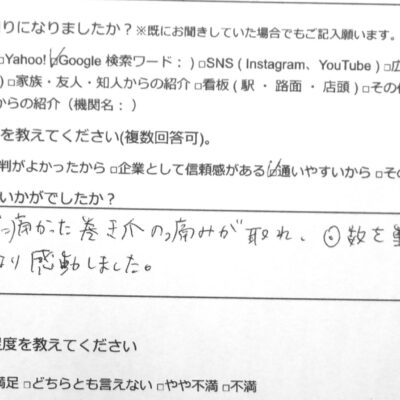 りになりましたか？※既にお聞きしていた場合でもご記入願います。
□Yahoo! ☑Google 検索ワード：）□SNS ( Instagram、YouTube ) □広
) □家族・友人・知人からの紹介 □看板 ( 駅 ・ 路面 ・ 店頭 ) □その
からの紹介（機関名：）
を教えてください(複数回答可)。
判がよかったから □企業として信頼感がある ☑通いやすいから □そ
いかがでしたか？
痛かった巻き爪の痛みが取れ、回数を
感動しました。
度を教えてください
満足 □どちらとも言えない □やや不満 □不満